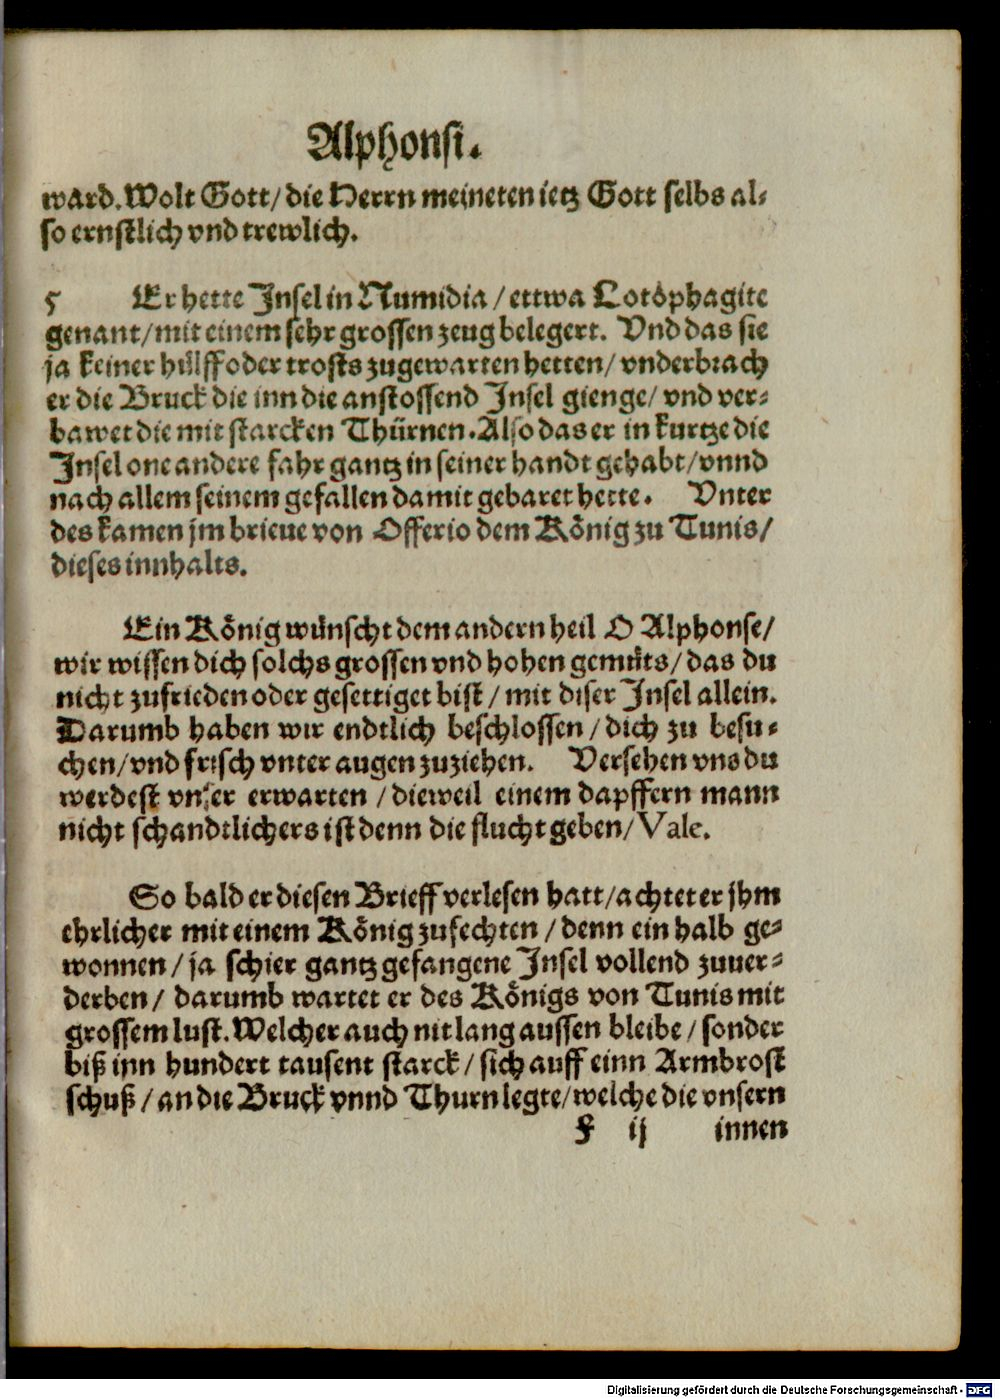 Alphonsi.
ward. Wolt Gott/ die Herrn meineten ietz Gott selbs al-
so ernstlich vnd trewlich.
5 Er hette Insel in Numidia / ettwa Lotophagite
genant/ mit einem sehr grossen zeug belegert. Vnd das sie
ja keiner hülff oder trosts zugewarten hetten/ vnderbrach
er die Bruck die inn die anstossend Insel gienge/ vnd ver-
bawet die mit starcken Thürnen. Also das er in kurtze die
Insel one andere fahr gantz in seiner handt gehabt/ vnnd
nach allem seinem gefallen damit gebaret hette. Vnter
des kamen jm brieue von Offerio dem König zu Tunis/
dieses innhalts.
Ein König wünscht dem andern heil O Alphonse/
wir wissen dich solchs grossen vnd hohen gemüts/ das du
nicht zufrieden oder gesettiget bist / mit diser Insel allein.
Darumb haben wir endtlich beschlossen / dich zu besu-
chen/ vnd frisch vnter augen zuziehen. Versehen vns du
werdest vnser erwarten / dieweil einem dapffern mann
nicht schandtlichers ist denn die flucht geben/ Vale.
So bald er diesen Brieff verlesen hatt/ achtet er jhm
ehrlicher mit einem König zufechten / denn ein halb ge-
wonnen / ja schier gantz gefangene Insel vollend zuuer-
derben / darumb wartet er des Königs von Tunis mit
grossem lust. Welcher auch nit lang aussen bleibe / sonder
biß inn hundert tausent starck / sich auff einn Armbrost
schuß / an die Bruck vnnd Thurn legte/ welche die vnsern
F ij innen
Digitalisierung gefördert durch die Deutsche Forschungsgemeinschaft - DFG